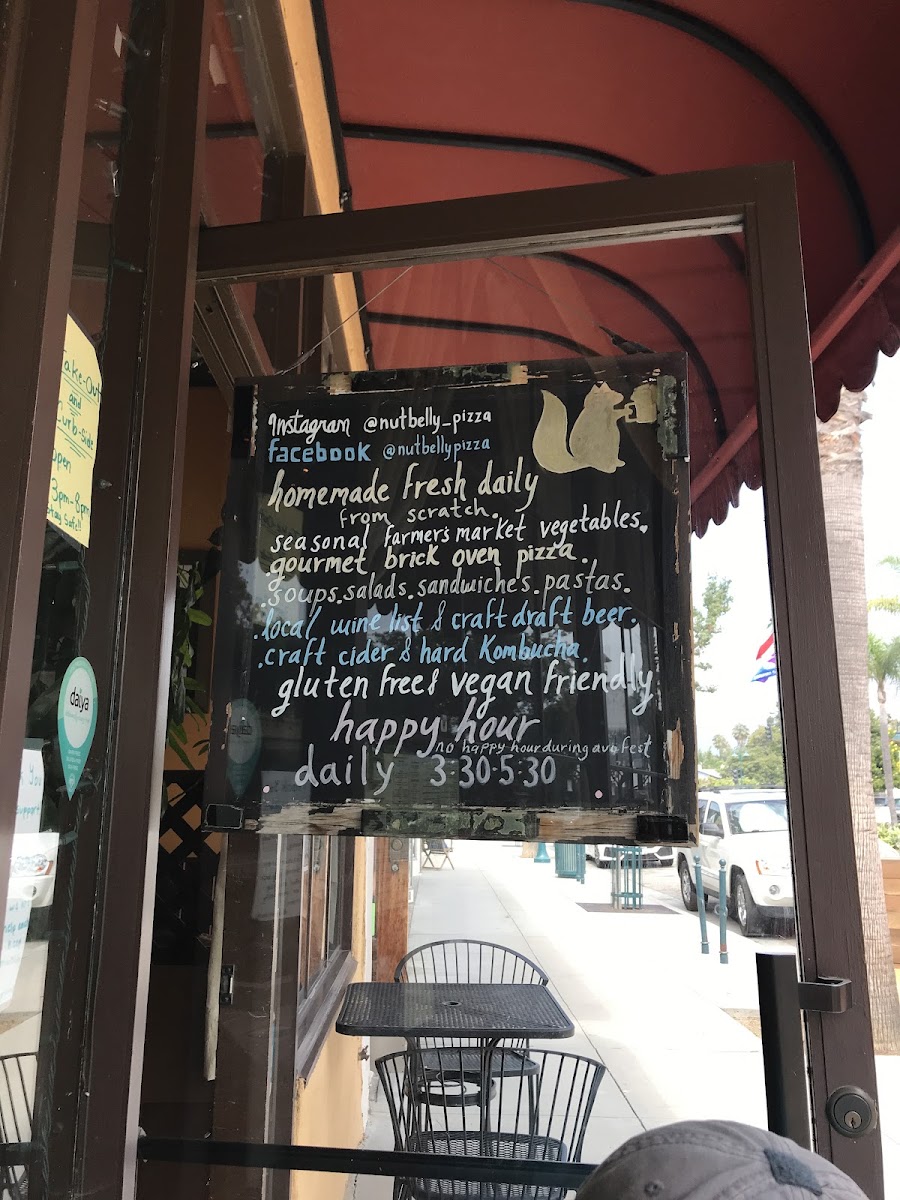 Instagram @nutbelly_pizza
facebook @nutbellypizza
homemade fresh daily
from scratch.
seasonal farmer's market vegetables.
gourmet brick oven pizza.
.soups.salads.sandwiche's.pastas.
.local wine list & craft draft beer.
.craft cider & hard Kombucha.
gluten free & vegan friendly
happy hour
no happy hour during avo fest
daily 3-30-5:30
Take-Out
and
curb-side
open
3pm-8pm
Stay Safe!!
daiya
You
support